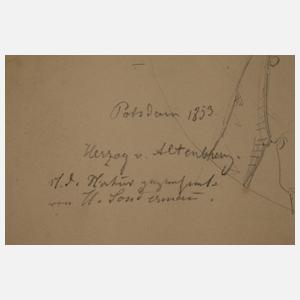 Potsdam 1853.
Herzog v. Altenburg.
N. d. Natur gezeichnet
von H. Sondermann.